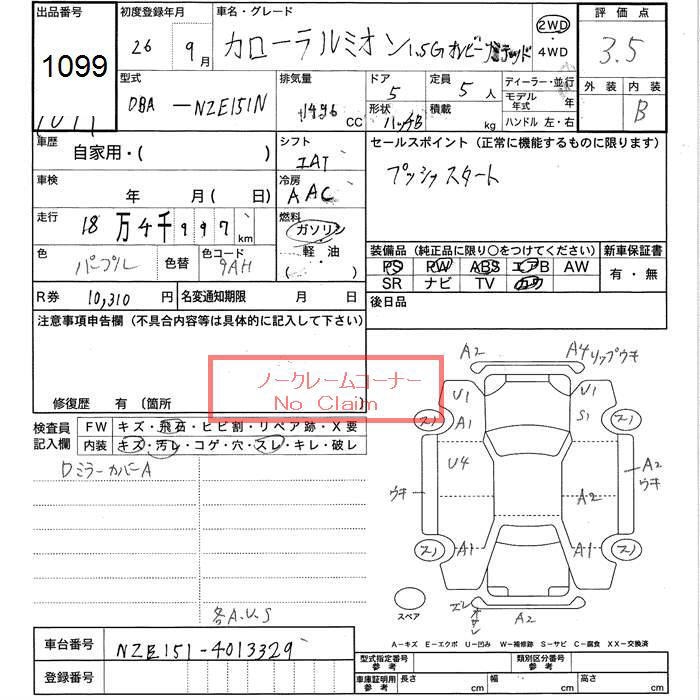 出品番号 初度登録年月 車名・グレード 2WD 評価点
1099 26 9月 カローラルミオン 1.5G オンビーリミテッド 4WD 3.5
型式 排気量 ドア 定員 ディーラー・並行 外装 内装
DBA -NZE151N 1496 CC 5 5人 モデル年式 年 B
形状 ハッチB 積載 kg ハンドル 左・右
車歴 自家用・( ) シフト IAT セールスポイント (正常に機能するものに限ります)
車検 年 月(日) 冷房 AAC プッシュスタート
走行 18万4千997km 燃料 ガソリン 軽・油 ( )
色 パープル 色替 色コード 9AH
装備品 (純正品に限り〇をつけてください) 新車保証書
PS PW ABS エアB AW 有・無
SR ナビ TV カワ
R券 10,310円 名変通知期限 月 日 後日品
注意事項申告欄 (不具合内容等は具体的に記入して下さい)
ノークレームコーナー
No Claim
修復歴 有 (箇所
検査員記入欄 FW キズ・飛石・ヒビ割・リペア跡・X要
内装 キズ・汚レ・コゲ・穴・スレ・キレ・破レ
ロミラーカバーA
各A.U.S
A2 A4 リップウキ
U1 U1
A1 S1
スソ スソ
U4 A2
ウキ A2 ウキ
スソ A1 A1 スソ
スペア ズレ A2
A-キズ E-エクボ U-凹み W-補修跡 S-サビ C-腐食 XX-交換済
車台番号 NZE151-4013329
登録番号
型式指定番号 参考 類別区分番号 参考
車庫証明用 参考 長さ cm 幅 cm 高さ cm